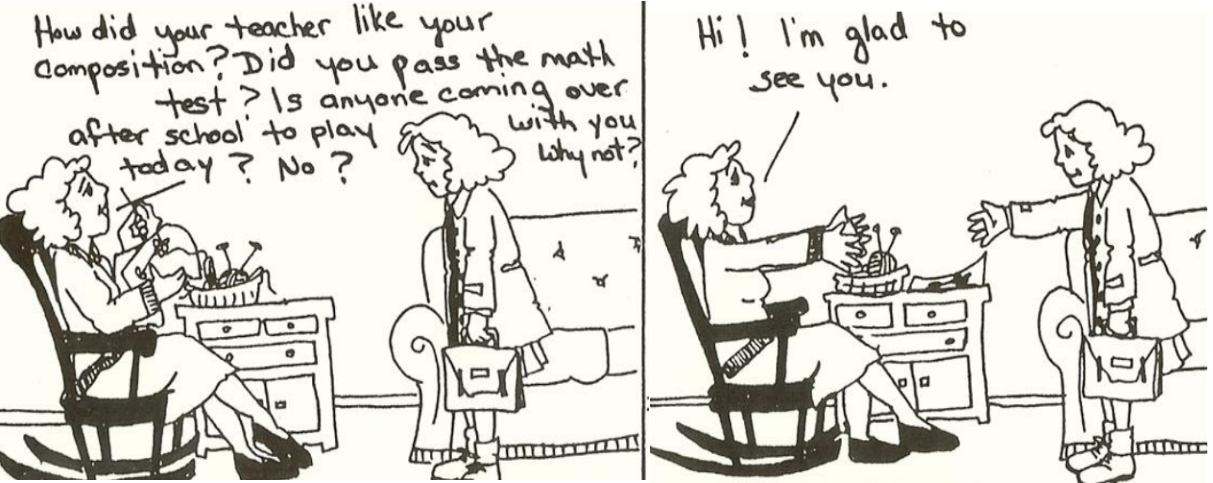 How did your teacher like your
composition? Did you pass the math
test? Is anyone coming over
after school to play with you
today? No? Why not?
Hi! I'm glad to
see you.